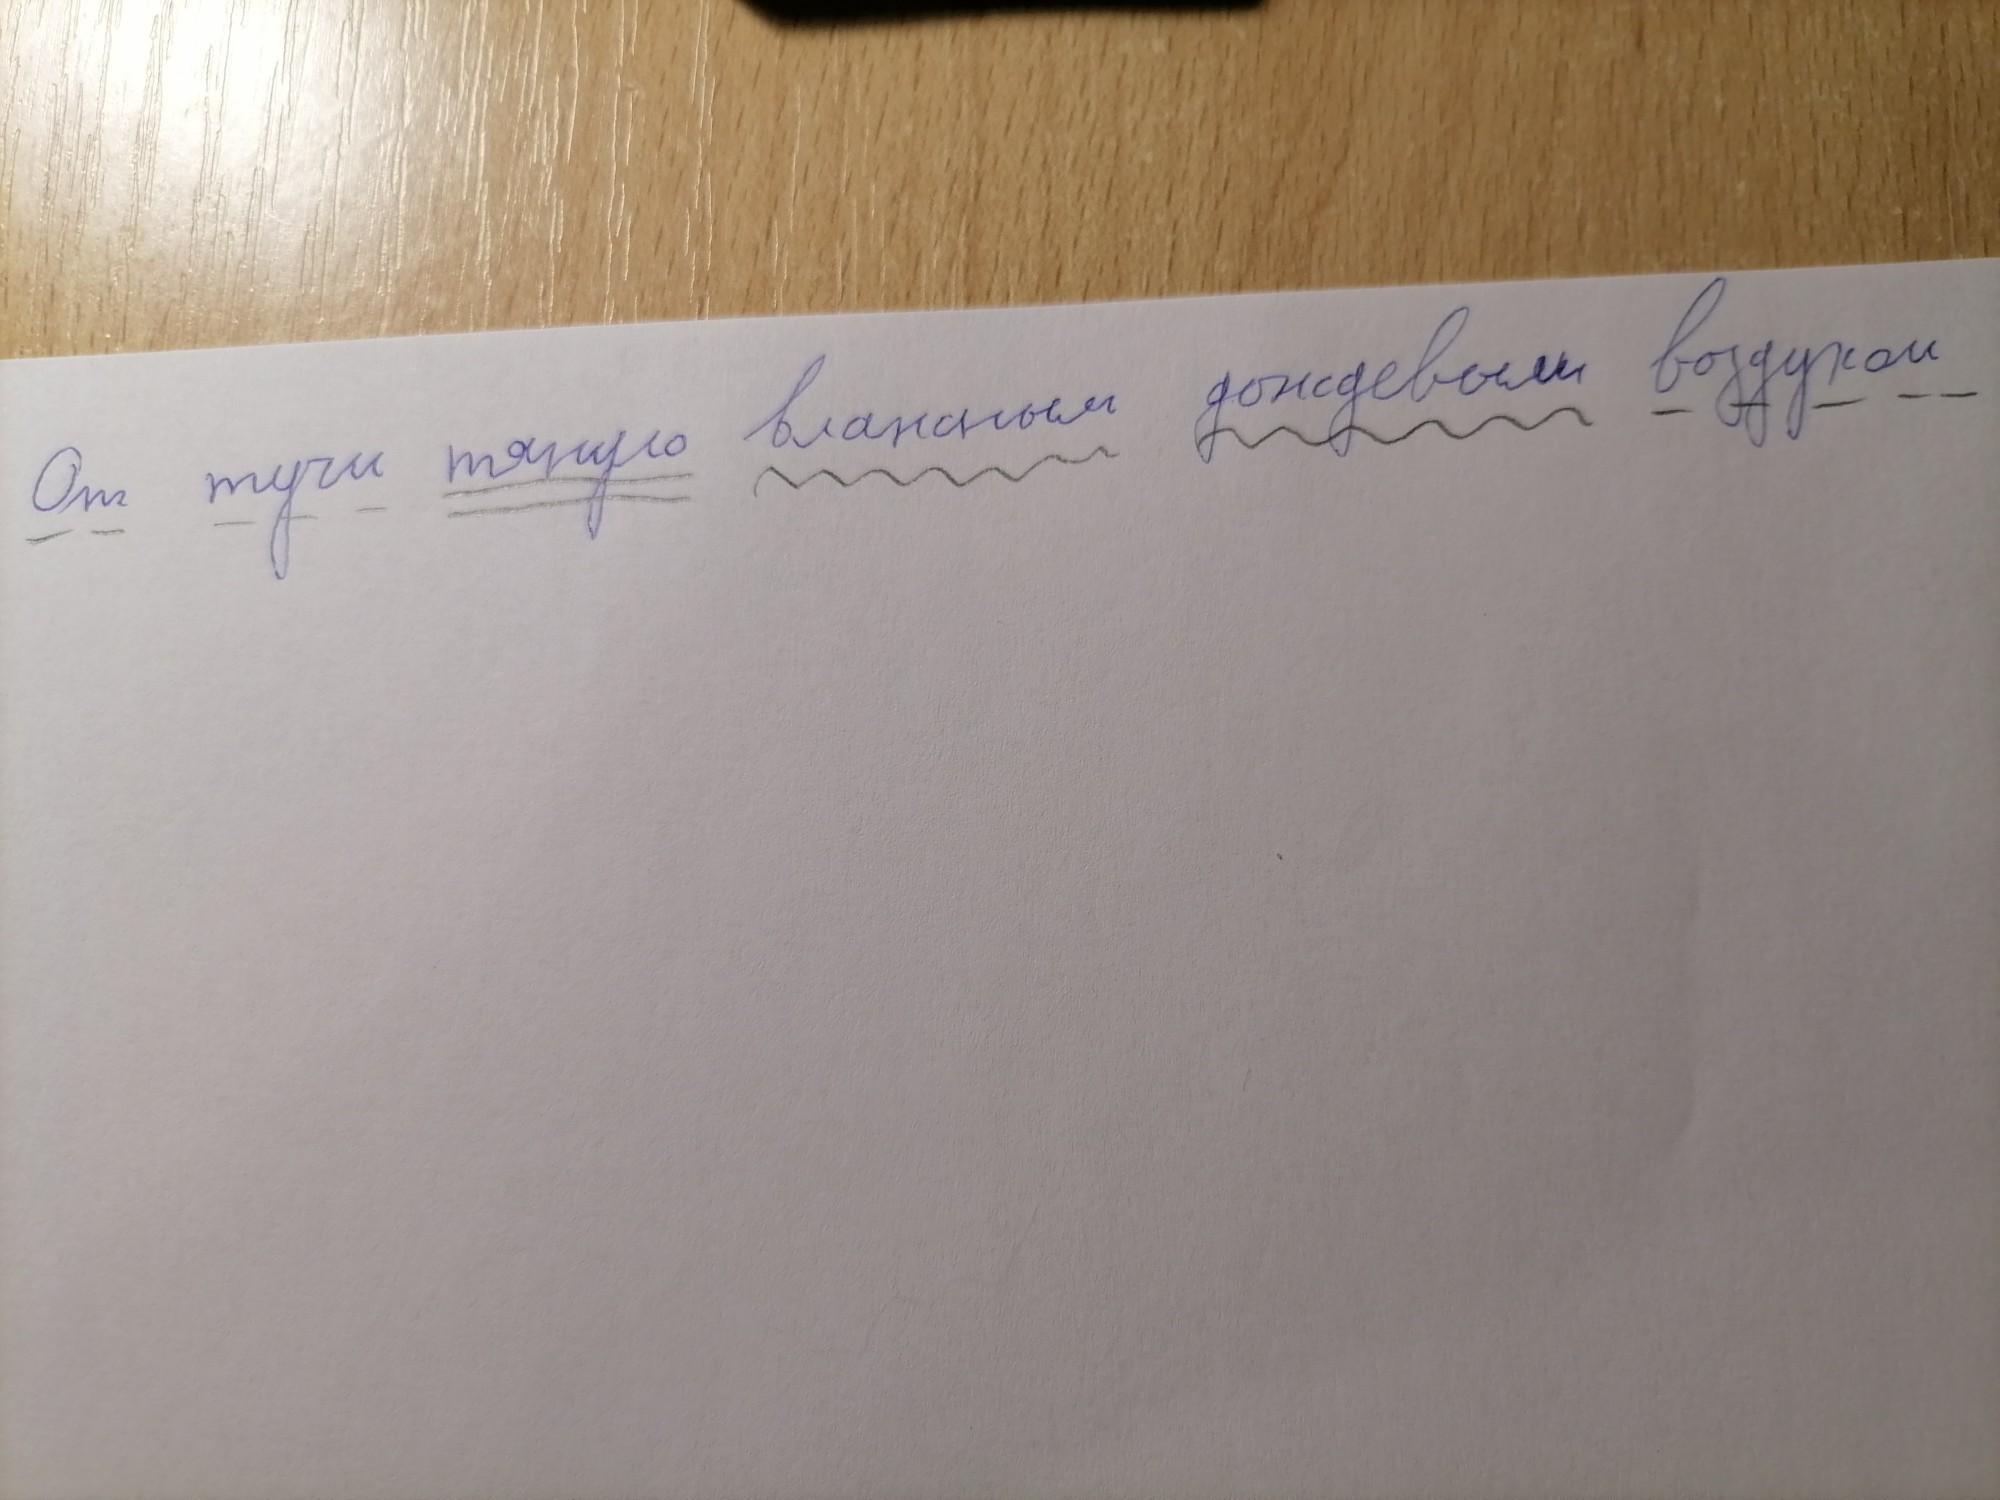 От тучи тянуло влажным дождевым воздухом